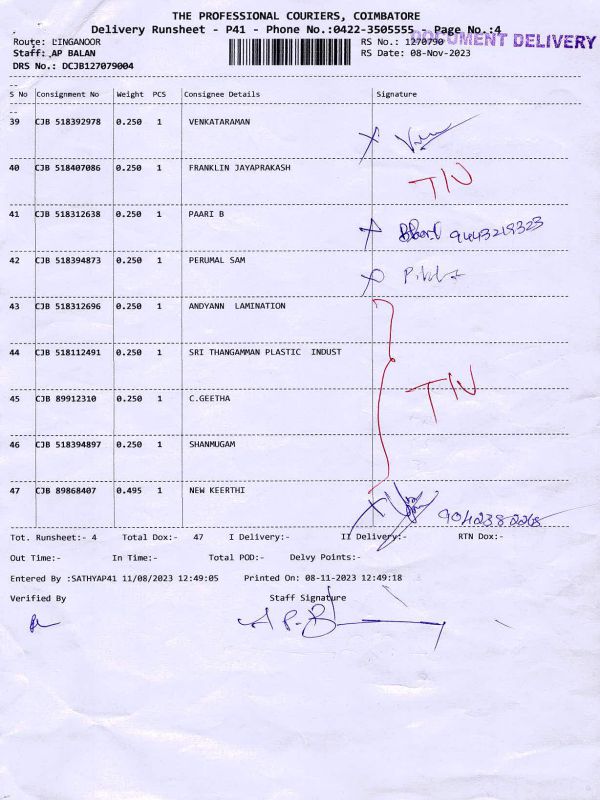 THE PROFESSIONAL COURIERS, COIMBATORE
Delivery Runsheet - P41 - Phone No.:0422-3505555 Page No.:4
DOCUMENT DELIVERY
Route: LINGANOOR RS No.: 1270790
Staff: AP BALAN RS Date: 08-Nov-2023
DRS No.: DCJB127079004
S No Consignment No Weight PCS Consignee Details Signature
39 CJB 518392978 0.250 1 VENKATARAMAN
40 CJB 518407086 0.250 1 FRANKLIN JAYAPRAKASH TIN
41 CJB 518312638 0.250 1 PAARI B
42 CJB 518394873 0.250 1 PERUMAL SAM
43 CJB 518312696 0.250 1 ANDYANN LAMINATION
44 CJB 518112491 0.250 1 SRI THANGAMMAN PLASTIC INDUST
45 CJB 89912310 0.250 1 C.GEETHA TIN
46 CJB 518394897 0.250 1 SHANMUGAM
47 CJB 89868407 0.495 1 NEW KEERTHI 9042382268
Tot. Runsheet:- 4 Total Dox:- 47 I Delivery:- II Delivery:- RTN Dox:-
Out Time:- In Time:- Total POD:- Delvy Points:-
Entered By :SATHYAP41 11/08/2023 12:49:05 Printed On: 08-11-2023 12:49:18
Verified By Staff Signature
A P. B